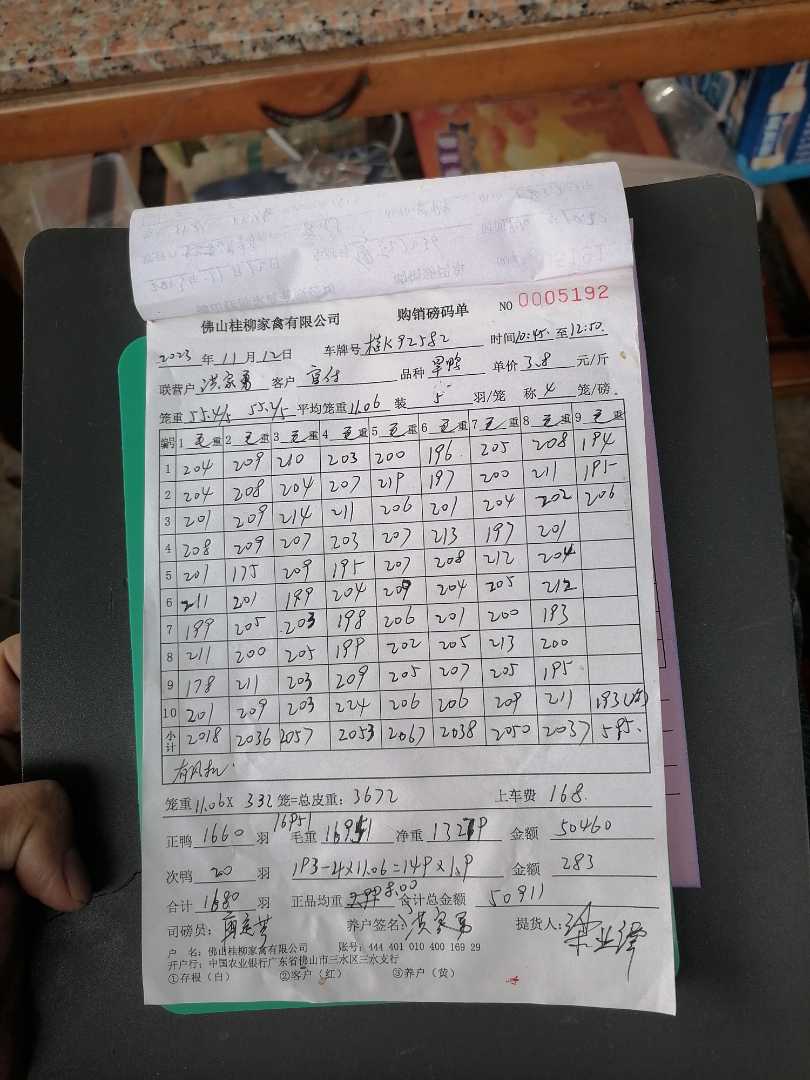 佛山桂柳家禽有限公司 购销磅码单 NO 0005192
2023 年 11 月 12 日 车牌号 桂K92582 时间 10:45 至 12:50
联营户 洪家勇 客户 品种 旱鸭 单价 3.8 元/斤
笼重 55.4/5 55.2/5 平均笼重 11.06 装 5 羽/笼 称 4 笼/磅
编号 1 毛重 2 毛重 3 毛重 4 毛重 5 毛重 6 毛重 7 毛重 8 毛重 9 毛重
1 204 209 210 203 200 196 205 208 194
2 204 208 204 207 219 197 200 211 195
3 201 209 214 211 206 201 204 202 206
4 208 209 207 203 207 213 197 201
5 201 175 209 195 207 208 212 204
6 211 201 199 204 209 204 205 212
7 199 205 203 198 206 201 200 193
8 211 200 205 199 202 205 213 200
9 178 211 203 209 205 207 205 195
10 201 209 203 224 206 206 209 211 193(次)
小计 2018 2036 2057 2053 2067 2038 2050 2037 595
笼重 11.06 X 332 笼=总皮重: 3672 上车费 168
16951
正鸭 1660 羽 毛重 16951 净重 13279 金额 50460
次鸭 20 羽 193-4×11.06=149×1.9 金额 283
合计 1680 羽 正品均重 8.00 合计总金额 50911
司磅员: 养户签名: 洪家勇 提货人:
户 名: 佛山桂柳家禽有限公司 账号: 444 401 010 400 169 29
开户行: 中国农业银行广东省佛山市三水区三水支行
①存根(白) ②客户(红) ③养户(黄)